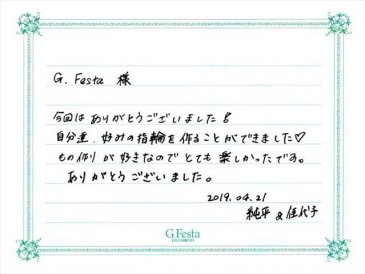 G. Festa 様
今回はありがとうございました!
自分達好みの指輪を作ることができました♡
もの作りが好きなのでとても楽しかったです。
ありがとうございました。
2019.04.21
純平 & 佳代子
G.Festa